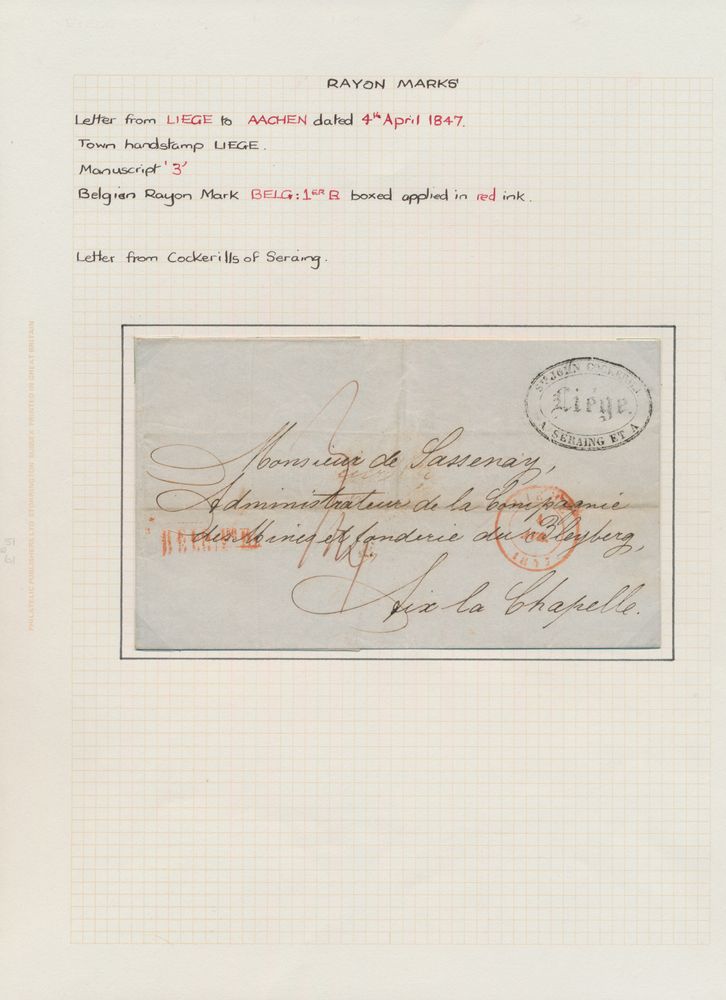 RAYON MARKS'
Letter from LIEGE to AACHEN dated 4th April 1847.
Town handstamp LIEGE.
Manuscript '3'
Belgian Rayon Mark BELG:1ER R boxed applied in red ink.
Letter from Cockerills of Seraing.
Ste JOHN COCKERILL
Liége.
A SERAING ET A
Monsieur de Sassenay,
Administrateur de la Compagnie
des Mines et fonderie du Bleyberg,
Aix la Chapelle.
LIEGE
4
1847
BELG. 1ER R.
PHILATELIC PUBLISHERS LTD STORRINGTON SUSSEX PRINTED IN GREAT BRITAIN